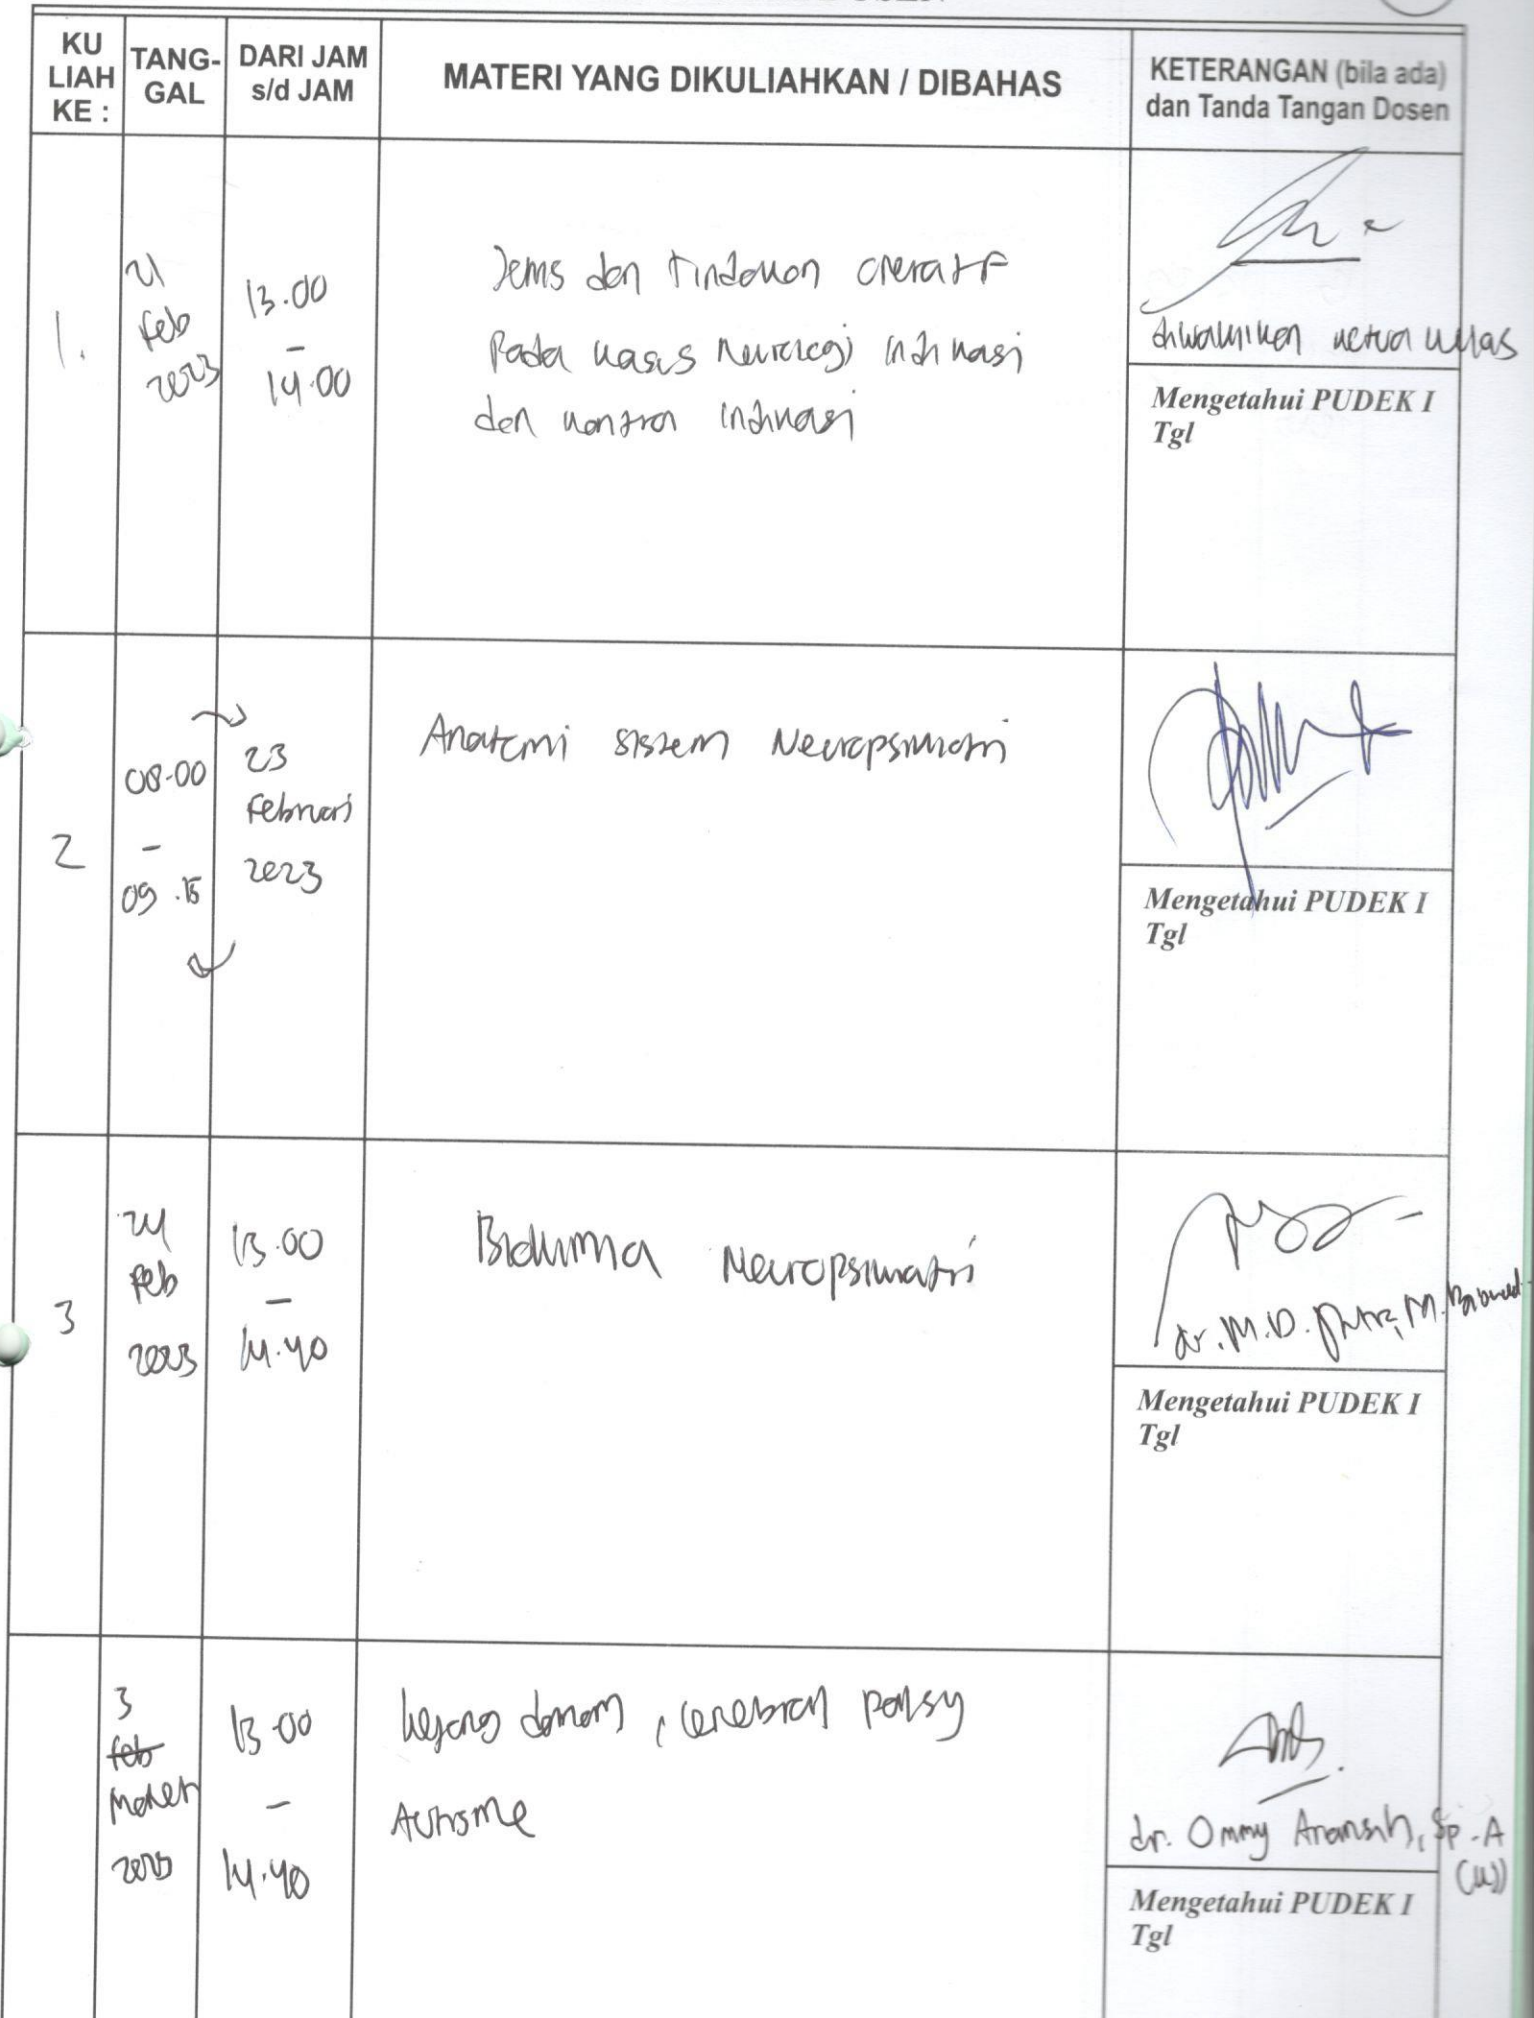 KU
LIAH
KE :
TANG-
GAL
DARI JAM
s/d JAM
MATERI YANG DIKULIAHKAN / DIBAHAS
KETERANGAN (bila ada)
dan Tanda Tangan Dosen
1.
21
Feb
2023
13.00
-
14.00
Jenis dan tindakan operatif
pada kasus Neurologi indikasi
dan kontra indikasi
diwakilkan ketua kelas
Mengetahui PUDEK I
Tgl
2
08.00
-
09.15
23
Februari
2023
Anatomi sistem Neuropsikiatri
Mengetahui PUDEK I
Tgl
3
24
Feb
2023
13.00
-
14.40
Biokimia Neuropsikiatri
dr. M.D. Putra, M.
Mengetahui PUDEK I
Tgl
3
Feb
Maret
2023
13.00
-
14.40
Kejang demam, cerebral palsy
Autisme
dr. Ommy Aransih, Sp.A
(K)
Mengetahui PUDEK I
Tgl